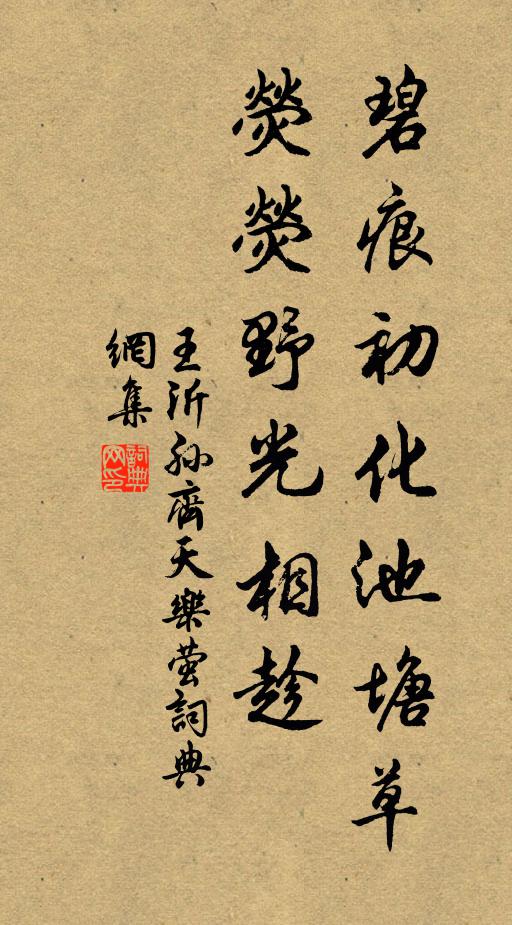 碧痕初化池塘草
熒熒野光相趁
王沂孙齊天樂萤詞典
網集
詞典
网印